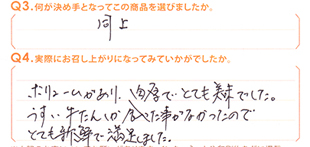 Q3.何が決め手となってこの商品を選びましたか。
同上
Q4.実際にお召し上がりになってみていかがでしたか。
ボリュームがあり、肉厚でとても美味でした。
うすい牛たんしか食べた事がなかったので
とても新鮮で満足しました。